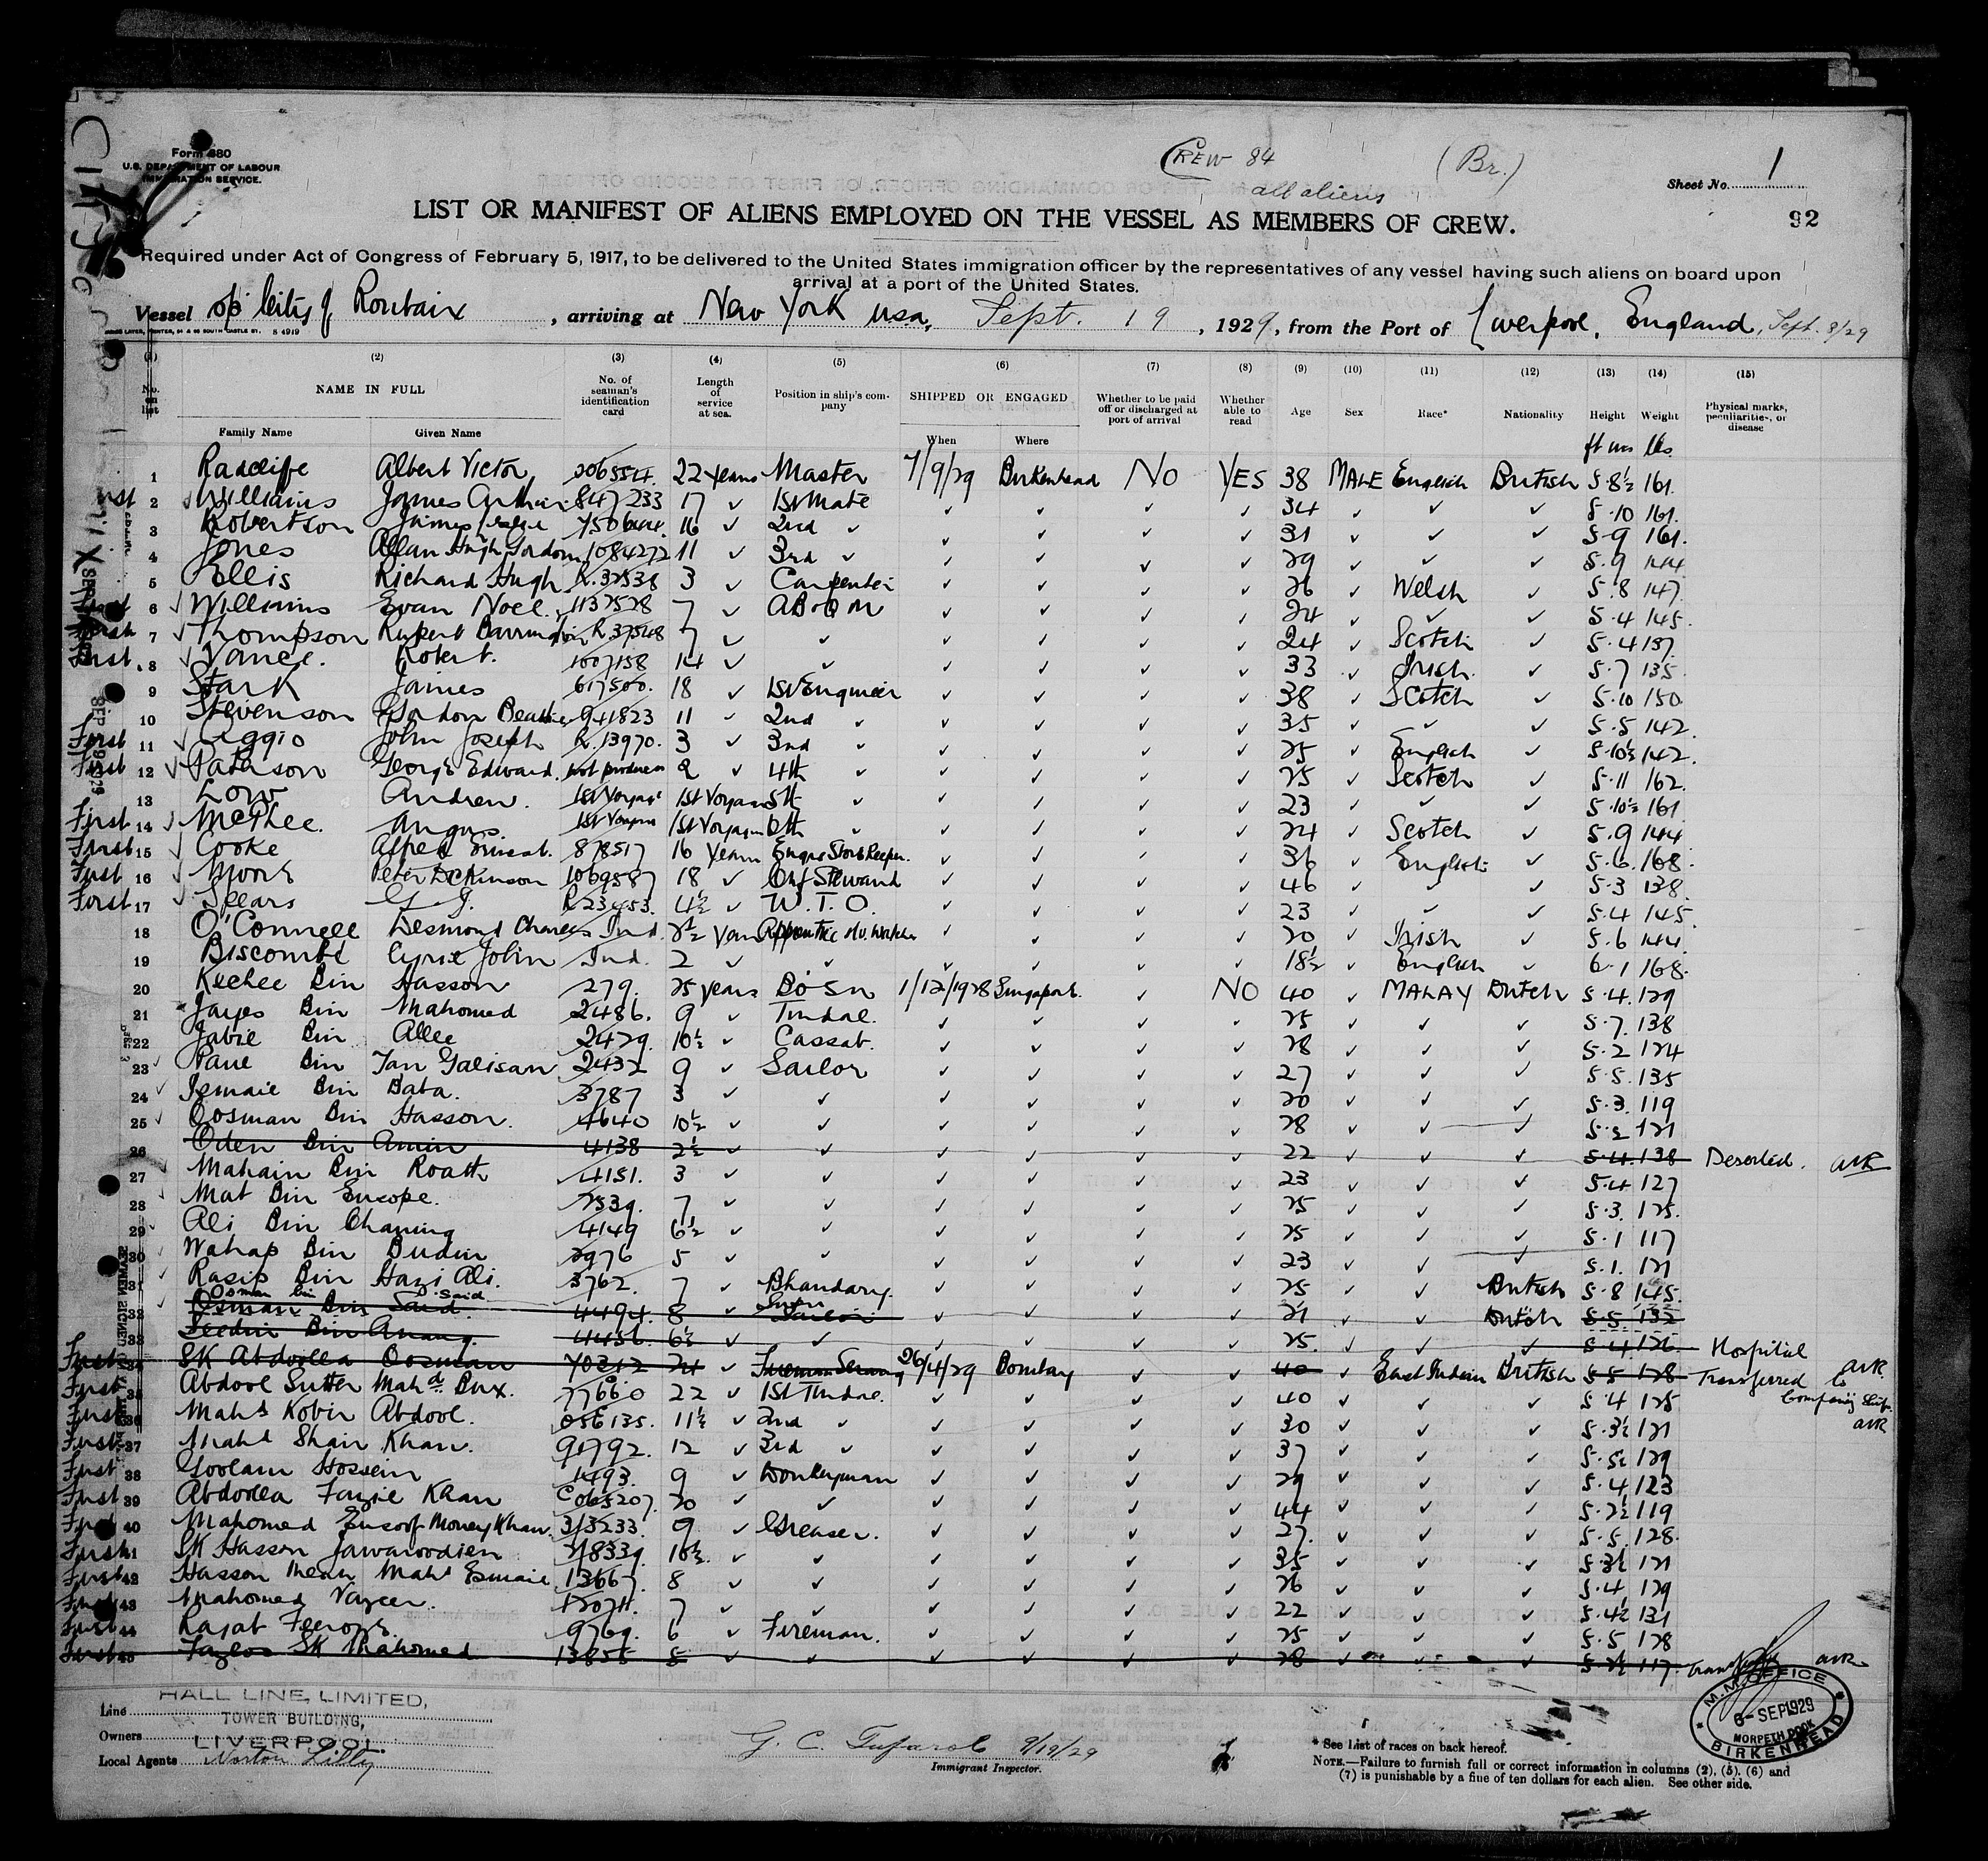 Form 680
U.S. DEPARTMENT OF LABOUR
IMMIGRATION SERVICE.
CREW 84 (Br.)
all aliens
Sheet No. 1
92
LIST OR MANIFEST OF ALIENS EMPLOYED ON THE VESSEL AS MEMBERS OF CREW.
Required under Act of Congress of February 5, 1917, to be delivered to the United States immigration officer by the representatives of any vessel having such aliens on board upon
arrival at a port of the United States.
Vessel City of Roubaix, arriving at New York USA, Sept. 19, 1929, from the Port of Liverpool, England, Sept. 8/29
(1) (2) (3) (4) (5) (6) (7) (8) (9) (10) (11) (12) (13) (14) (15)
No. on list NAME IN FULL No. of seaman's identification card Length of service at sea. Position in ship's company SHIPPED OR ENGAGED Whether to be paid off or discharged at port of arrival Whether able to read Age Sex Race* Nationality Height Weight Physical marks, peculiarities, or disease
Family Name Given Name When Where ft ins lbs
1 Radcliffe Albert Victor 2065554 22 years Master 7/9/29 Birkenhead No YES 38 MALE English British 5.8½ 161
2 Williams James Arthur 847233 17 1st Mate 34 5.10 161
3 Robertson James 16 2nd 31 5.9 161
4 Jones Allan Hugh Gordon 1084272 11 3rd 29 5.9 144
5 Ellis Richard Hugh R.32538 3 Carpenter 26 Welsh 5.8 147
6 Williams Evan Noel 1132528 7 24 5.4 145
7 Thompson Rupert Barrington R.37548 7 24 Scotch 5.4 137
8 Vance Robert 1007158 14 33 Irish 5.7 135
9 Stark James 617500 18 1st Engineer 38 Scotch 5.10 150
10 Stevenson Gordon Beattie 941823 11 2nd 35 5.5 142
First 11 Aggio John Joseph R.13970 3 3rd 25 English 5.10½ 142
First 12 Paterson George Edward not produced 2 4th 25 Scotch 5.11 162
13 Low Andrew 1st Voyage 1st Voyage 5th 23 5.10½ 161
First 14 McPhee Angus 1st Voyage 1st Voyage 6th 24 Scotch 5.9 144
First 15 Cooke Alfred Ernest 878517 16 years Engrs Store Keeper 36 English 5.6 168
First 16 Moore Peter Dickinson 1069587 18 Chf Steward 46 5.3 138
First 17 Spears G. J. R23453 4½ W.T.O. 23 5.4 145
18 O'Connell Desmond Charles Ind. 2½ years Apprentice 20 Irish 5.6 144
19 Biscombe Cyril John Ind. 2 18½ English 6.1 168
20 Kechee Bin Hasson 279 25 years Bo'sn 1/12/1928 Singapore NO 40 MALAY Dutch 5.4 129
21 Jayes Bin Mahomed 2486 9 Tindal 25 5.7 138
22 Jabie Bin Allee 2479 10½ Cassab 28 5.2 124
23 Bin Tan Galisan 2432 9 Sailor 27 5.5 135
24 Ismail Bin Baba 3787 3 20 5.3 119
25 Oosman Bin Hasson 4640 10½ 28 5.2 121
26 Oden Bin Amin 4138 2½ 22 5.4 138 Deserted
27 Mahain Bin Roatth 4151 3 23 5.4 127
28 Mat Bin Eusope 2539 7 25 5.3 125
29 Ali Bin Chaning 4149 6½ 25 5.1 117
30 Wahap Bin Budin 2976 5 23 5.1 121
31 Rasip Bin Hazi Ali 3762 7 Bhandary 25 British 5.8 145
32 Osman Bin Said 4494 8 Sailor 21 Dutch 5.5 132
33 Bin 4456 6½ 25 5.4 126 Hospital
First 34 SK Abdoolla Oosman 70212 24 Fireman Serang 26/4/29 Bombay 40 East Indian British 5.5 128 Transferred to Company Ship
First 35 Abdool Sutter Mahd. Bux 77660 22 1st Tindal 40 5.4 125
First 36 Mahd Kobir Abdool 056135 11½ 2nd 30 5.3½ 121
First 37 Mahd Shair Khan 91792 12 3rd 37 5.5½ 129
First 38 Goolam Hossein 1493 9 Donkeyman 29 5.4 123
First 39 Abdoolla Fazil Khan C065207 20 44 5.2½ 119
First 40 Mahomed Eusoof Money Khan 3/3233 9 Greaser 27 5.5 128
First 41 SK Hassen Jawaroodien 2/8339 10½ 35 5.3½ 121
First 42 Hasson Meah Mahd Esmail 13667 8 26 5.4 129
First 43 Mahomed Vazeer 7 22 5.4½ 131
First 44 Rajab Feeroze 9769 6 Fireman 25 5.5 128
First 45 Fazloo SK Mahomed 13855 5 28 117 Transferred
Line HALL LINE, LIMITED,
Owners TOWER BUILDING,
LIVERPOOL
Local Agents Norton Lilly
G. C. 9/19/29
Immigrant Inspector.
* See List of races on back hereof.
NOTE.—Failure to furnish full or correct information in columns (2), (5), (6) and
(7) is punishable by a fine of ten dollars for each alien. See other side.
M.M. OFFICE
6-SEP 1929
MORPETH DOCK
BIRKENHEAD